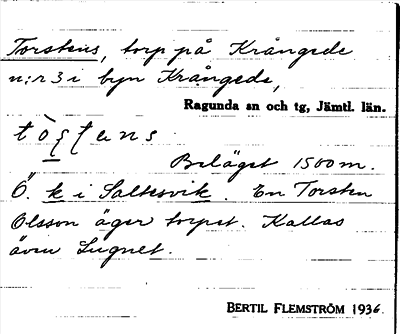 Torstens, torp på Krångede
n:r 3 i byn Krångede,
Ragunda sn och tg, Jämtl. län.
Beläget 1500 m.
Ö. k i Saltesvik. En Torsten
Olsson äger torpet. Kallas
även Lugnet.
BERTIL FLEMSTRÖM 1936.